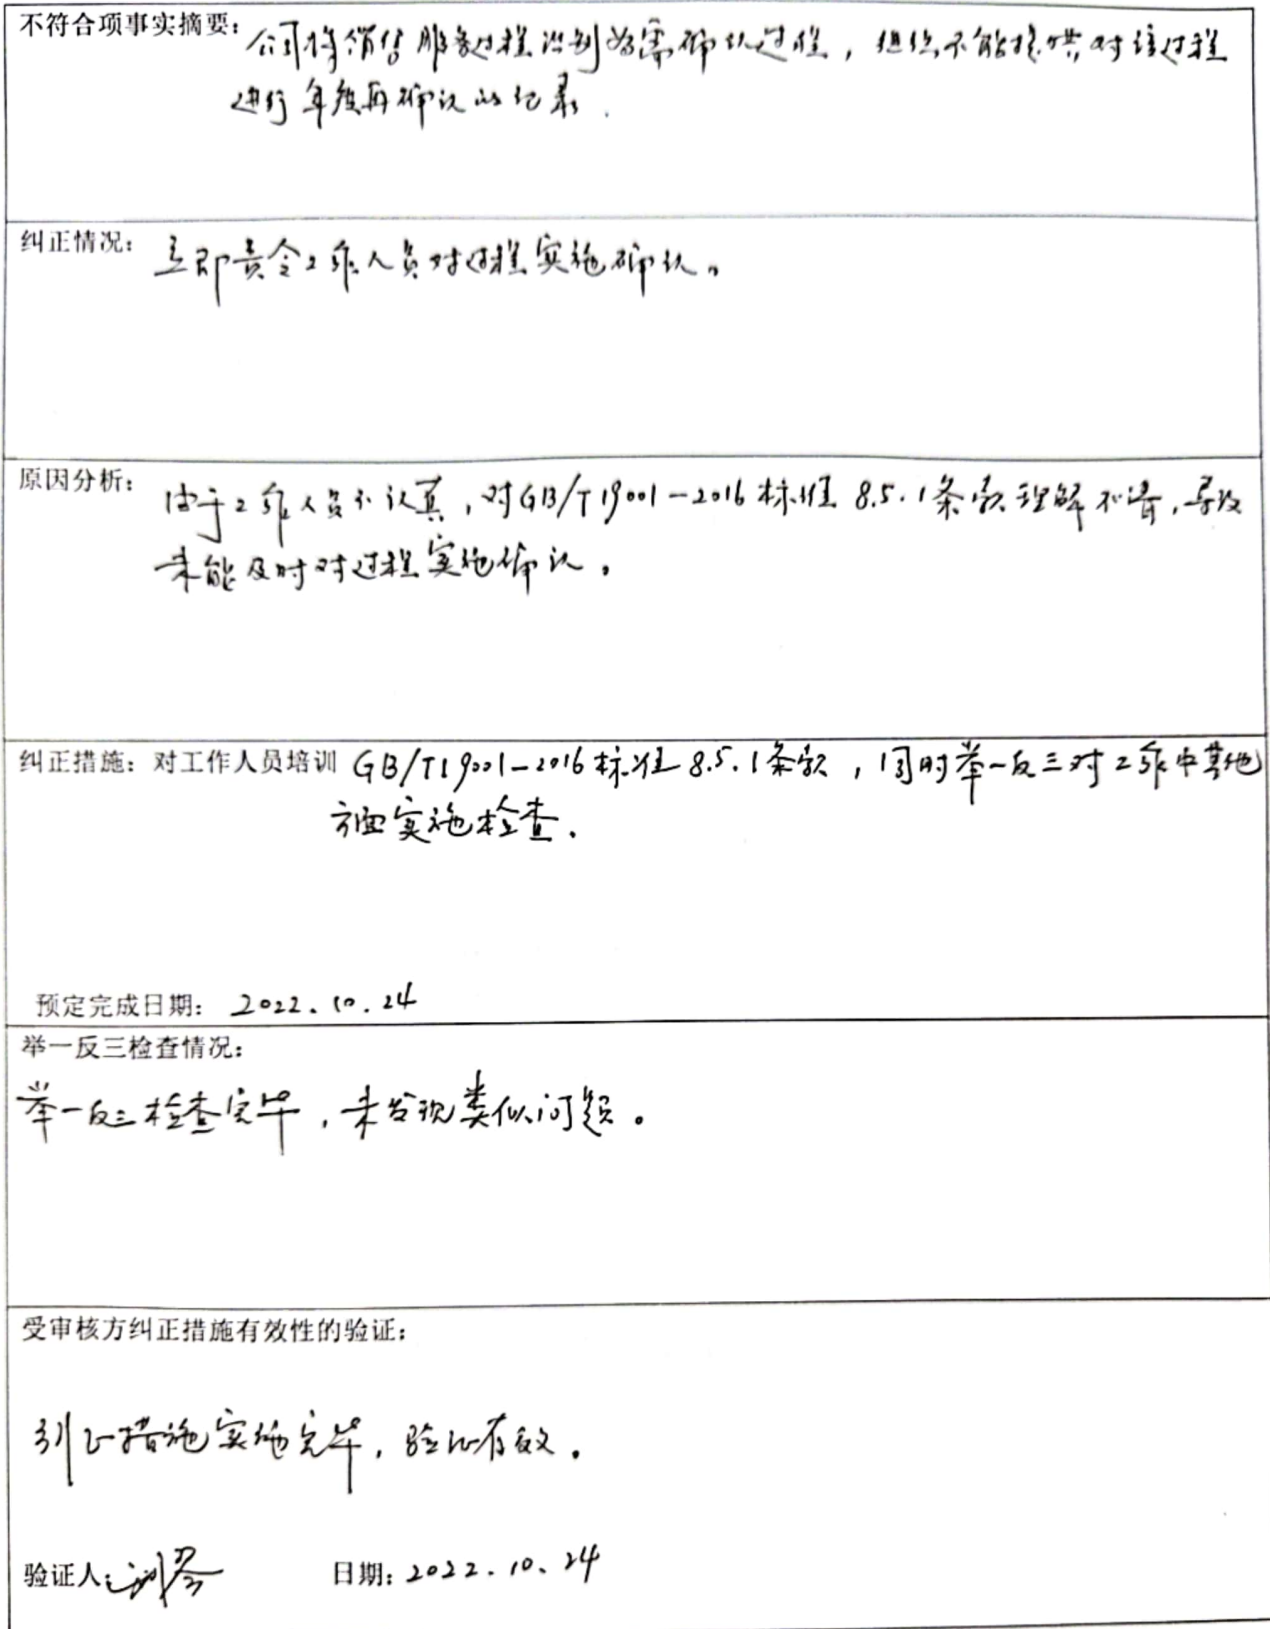 不符合项事实摘要：公司将销售服务过程识别为需确认过程，但不能提供对该过程
进行年度再确认的记录.
纠正情况：立即责令工作人员对过程实施确认。
原因分析：由于工作人员不认真，对GB/T19001-2016标准 8.5.1条款理解不清，导致
未能及时对过程实施确认。
纠正措施：对工作人员培训 GB/T19001-2016标准 8.5.1条款，同时举一反三对工作中其他
方面实施检查.
预定完成日期：2022.10.24
举一反三检查情况：
举一反三检查完毕，未发现类似问题。
受审核方纠正措施有效性的验证：
纠正措施实施完毕，验证有效。
验证人： 日期：2022.10.24